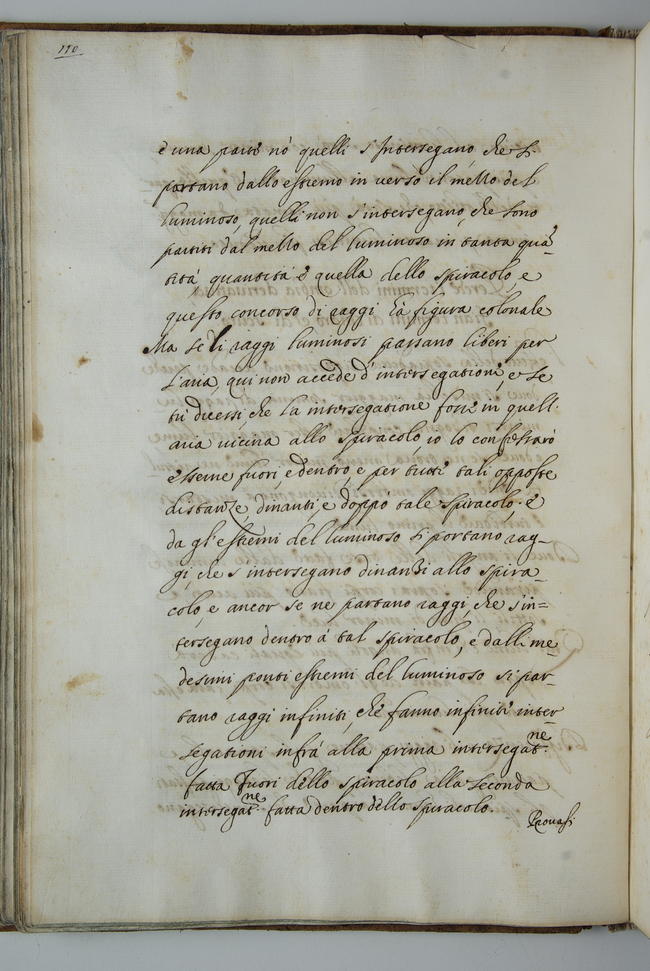 110
è una parte nò quelli s'Intersegano, che si
partano dallo estremo in verso il mezzo del
luminoso, quelli non s'intersegano, che sono
partiti dal mezzo del luminoso in tanta quã
tità, quantità è quella dello spiracolo, e
questo concorso di raggi hà figura colonale
Ma se li raggi luminosi passano liberi per
l'aria, qui non accede d'intersegationi, e se
tu dicessi, che la intersegatione fosse in quell'
aria vicina allo spiracolo, io lo confesserò
essere fuori, e dentro, e per tutte tali opposte
distanze, dinanti, e doppò tale spiracolo. è
da gl'estremi del luminoso si portano rag-
gi, che s'intersegano dinanzi allo spira-
colo, e ancor se ne partano raggi, che s'in=
tersegano dentro à tal spiracolo, e dalli me-
desimi ponti estremi del luminoso si par-
tano raggi infiniti, che fanno infinite inter-
segationi infrà alla prima intersegat.ne
fatta fuori dello spiracolo alla seconda
intersegat.ne fatta dentro dello spiracolo.
Provasi